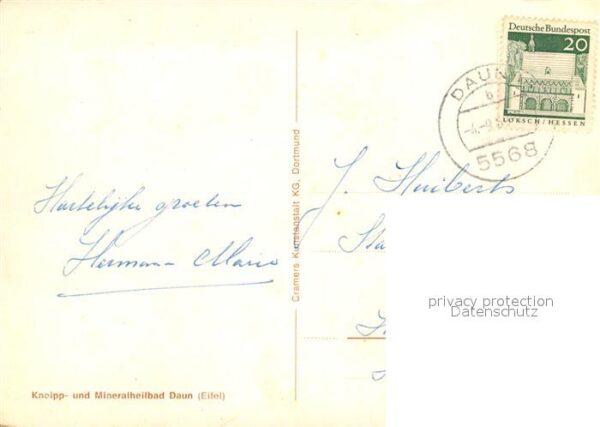 Deutsche Bundespost
20
LORSCH/HESSEN
DAUN
b
-4.-9.
5568
J. Huiberts
Sta
Hartelijke groeten
Hermann Mario
Cramers Kunstanstalt KG. Dortmund
privacy protection
Datenschutz
Kneipp- und Mineralheilbad Daun (Eifel)